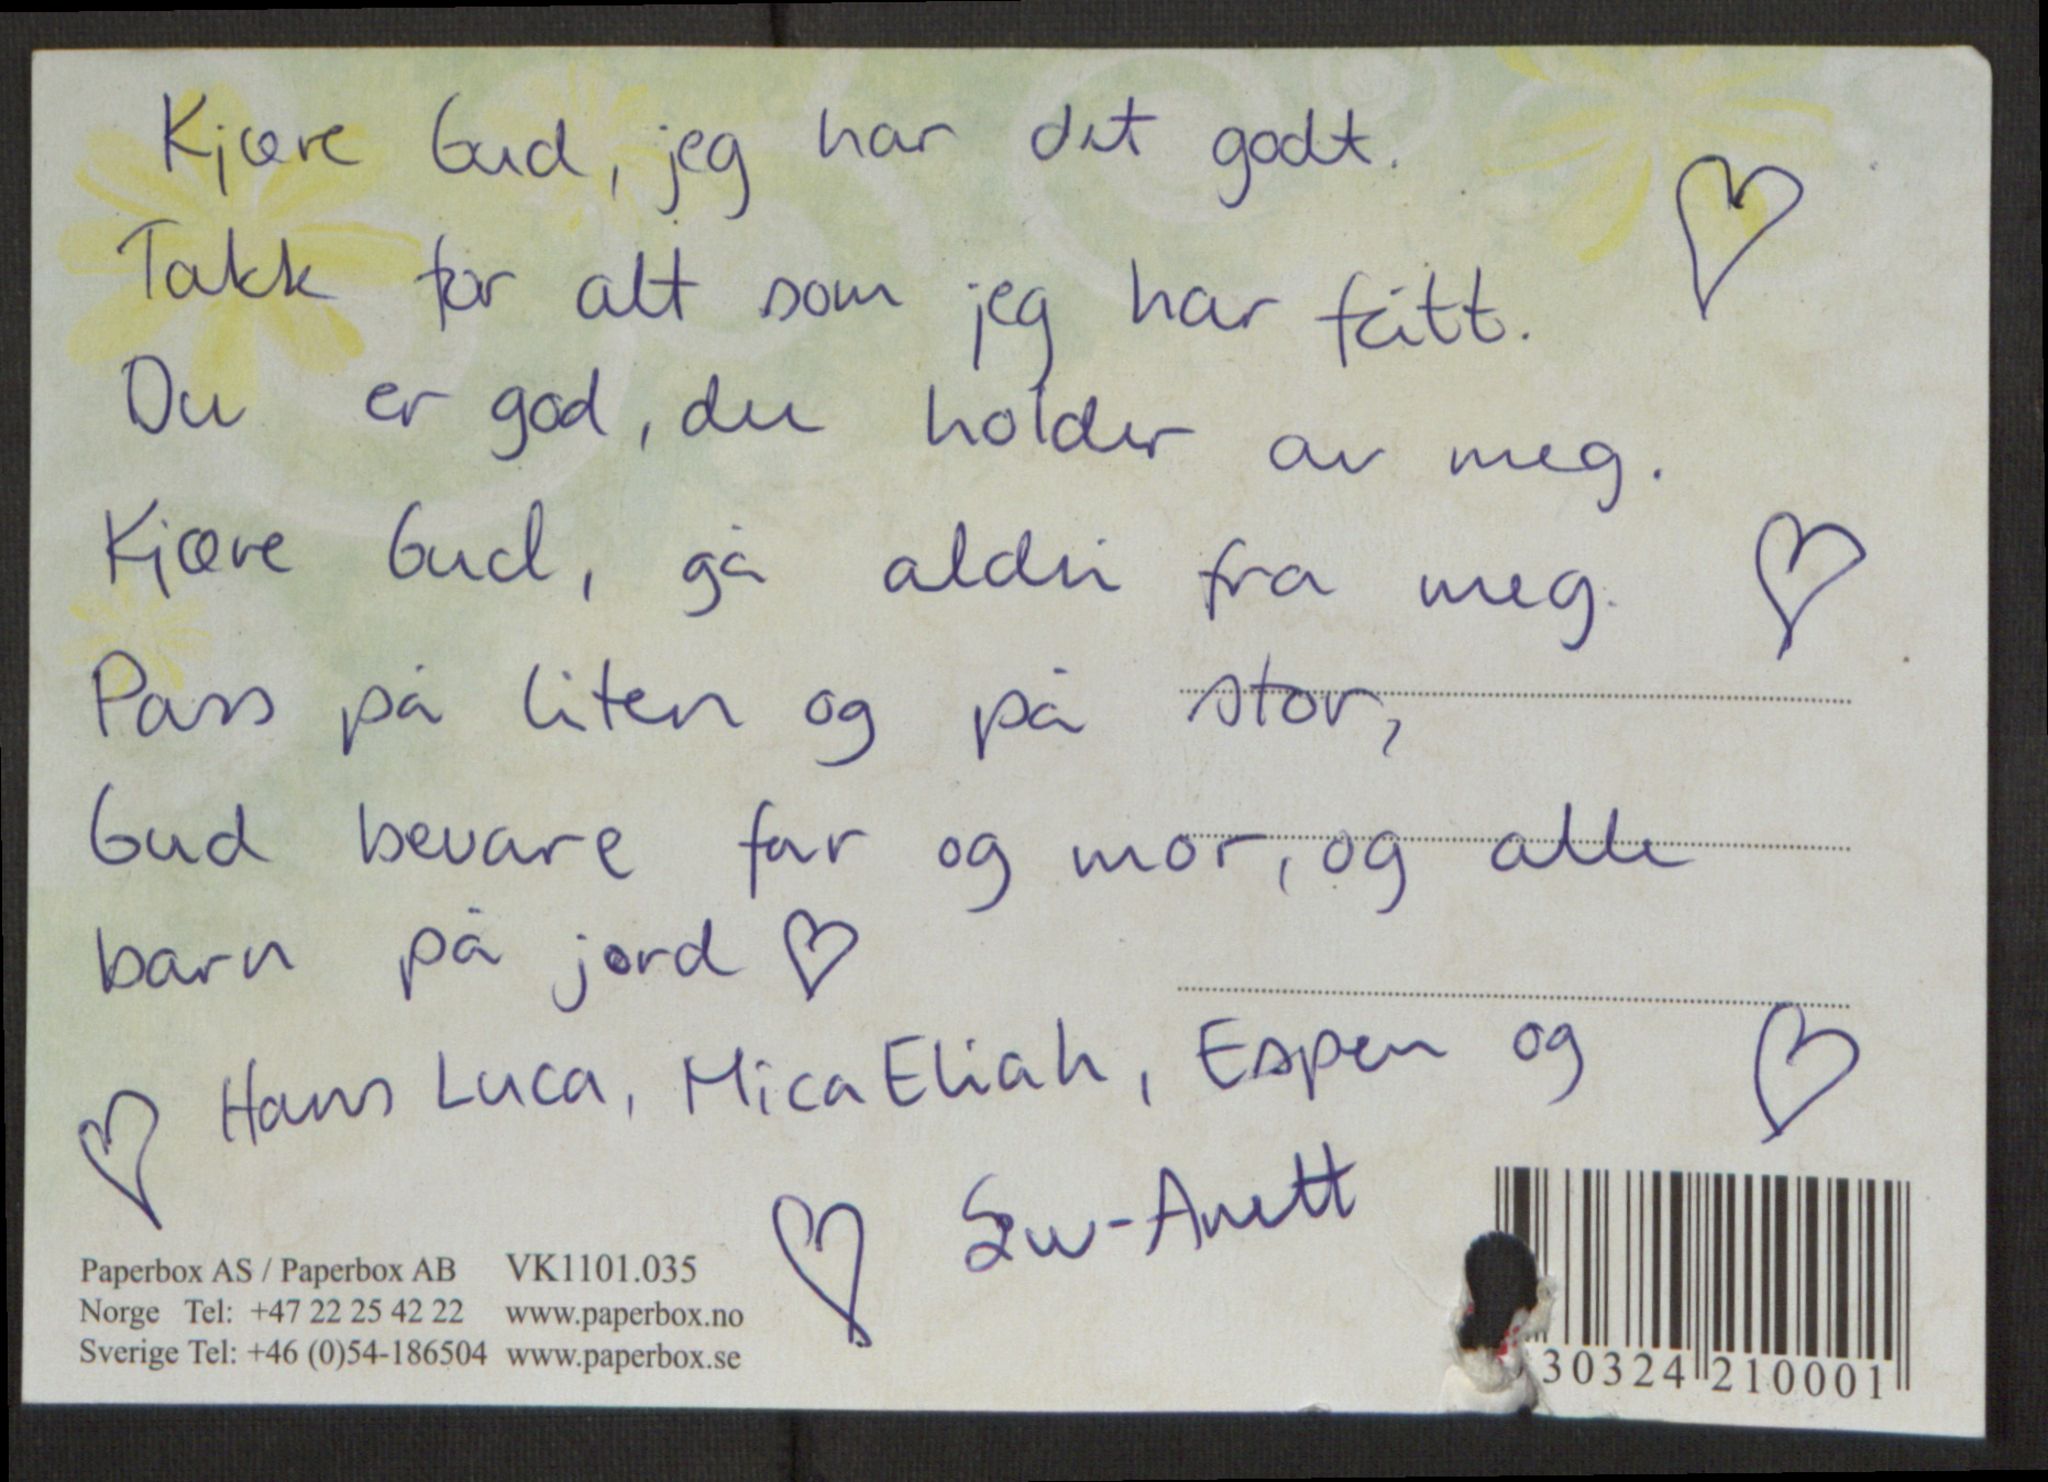 Kjære Gud, jeg har det godt.
Takk for alt som jeg har fått.
Du er god, du holder av meg.
Kjære Gud, gå aldri fra meg.
Pass på liten og på stor,
Gud bevare far og mor, og alle
barn på jord ♡
Hans Luca, Mica Eliah, Espen og
-Anett
Paperbox AS / Paperbox AB VK1101.035
Norge Tel: +47 22 25 42 22 www.paperbox.no
Sverige Tel: +46 (0)54-186504 www.paperbox.se
30324 210001